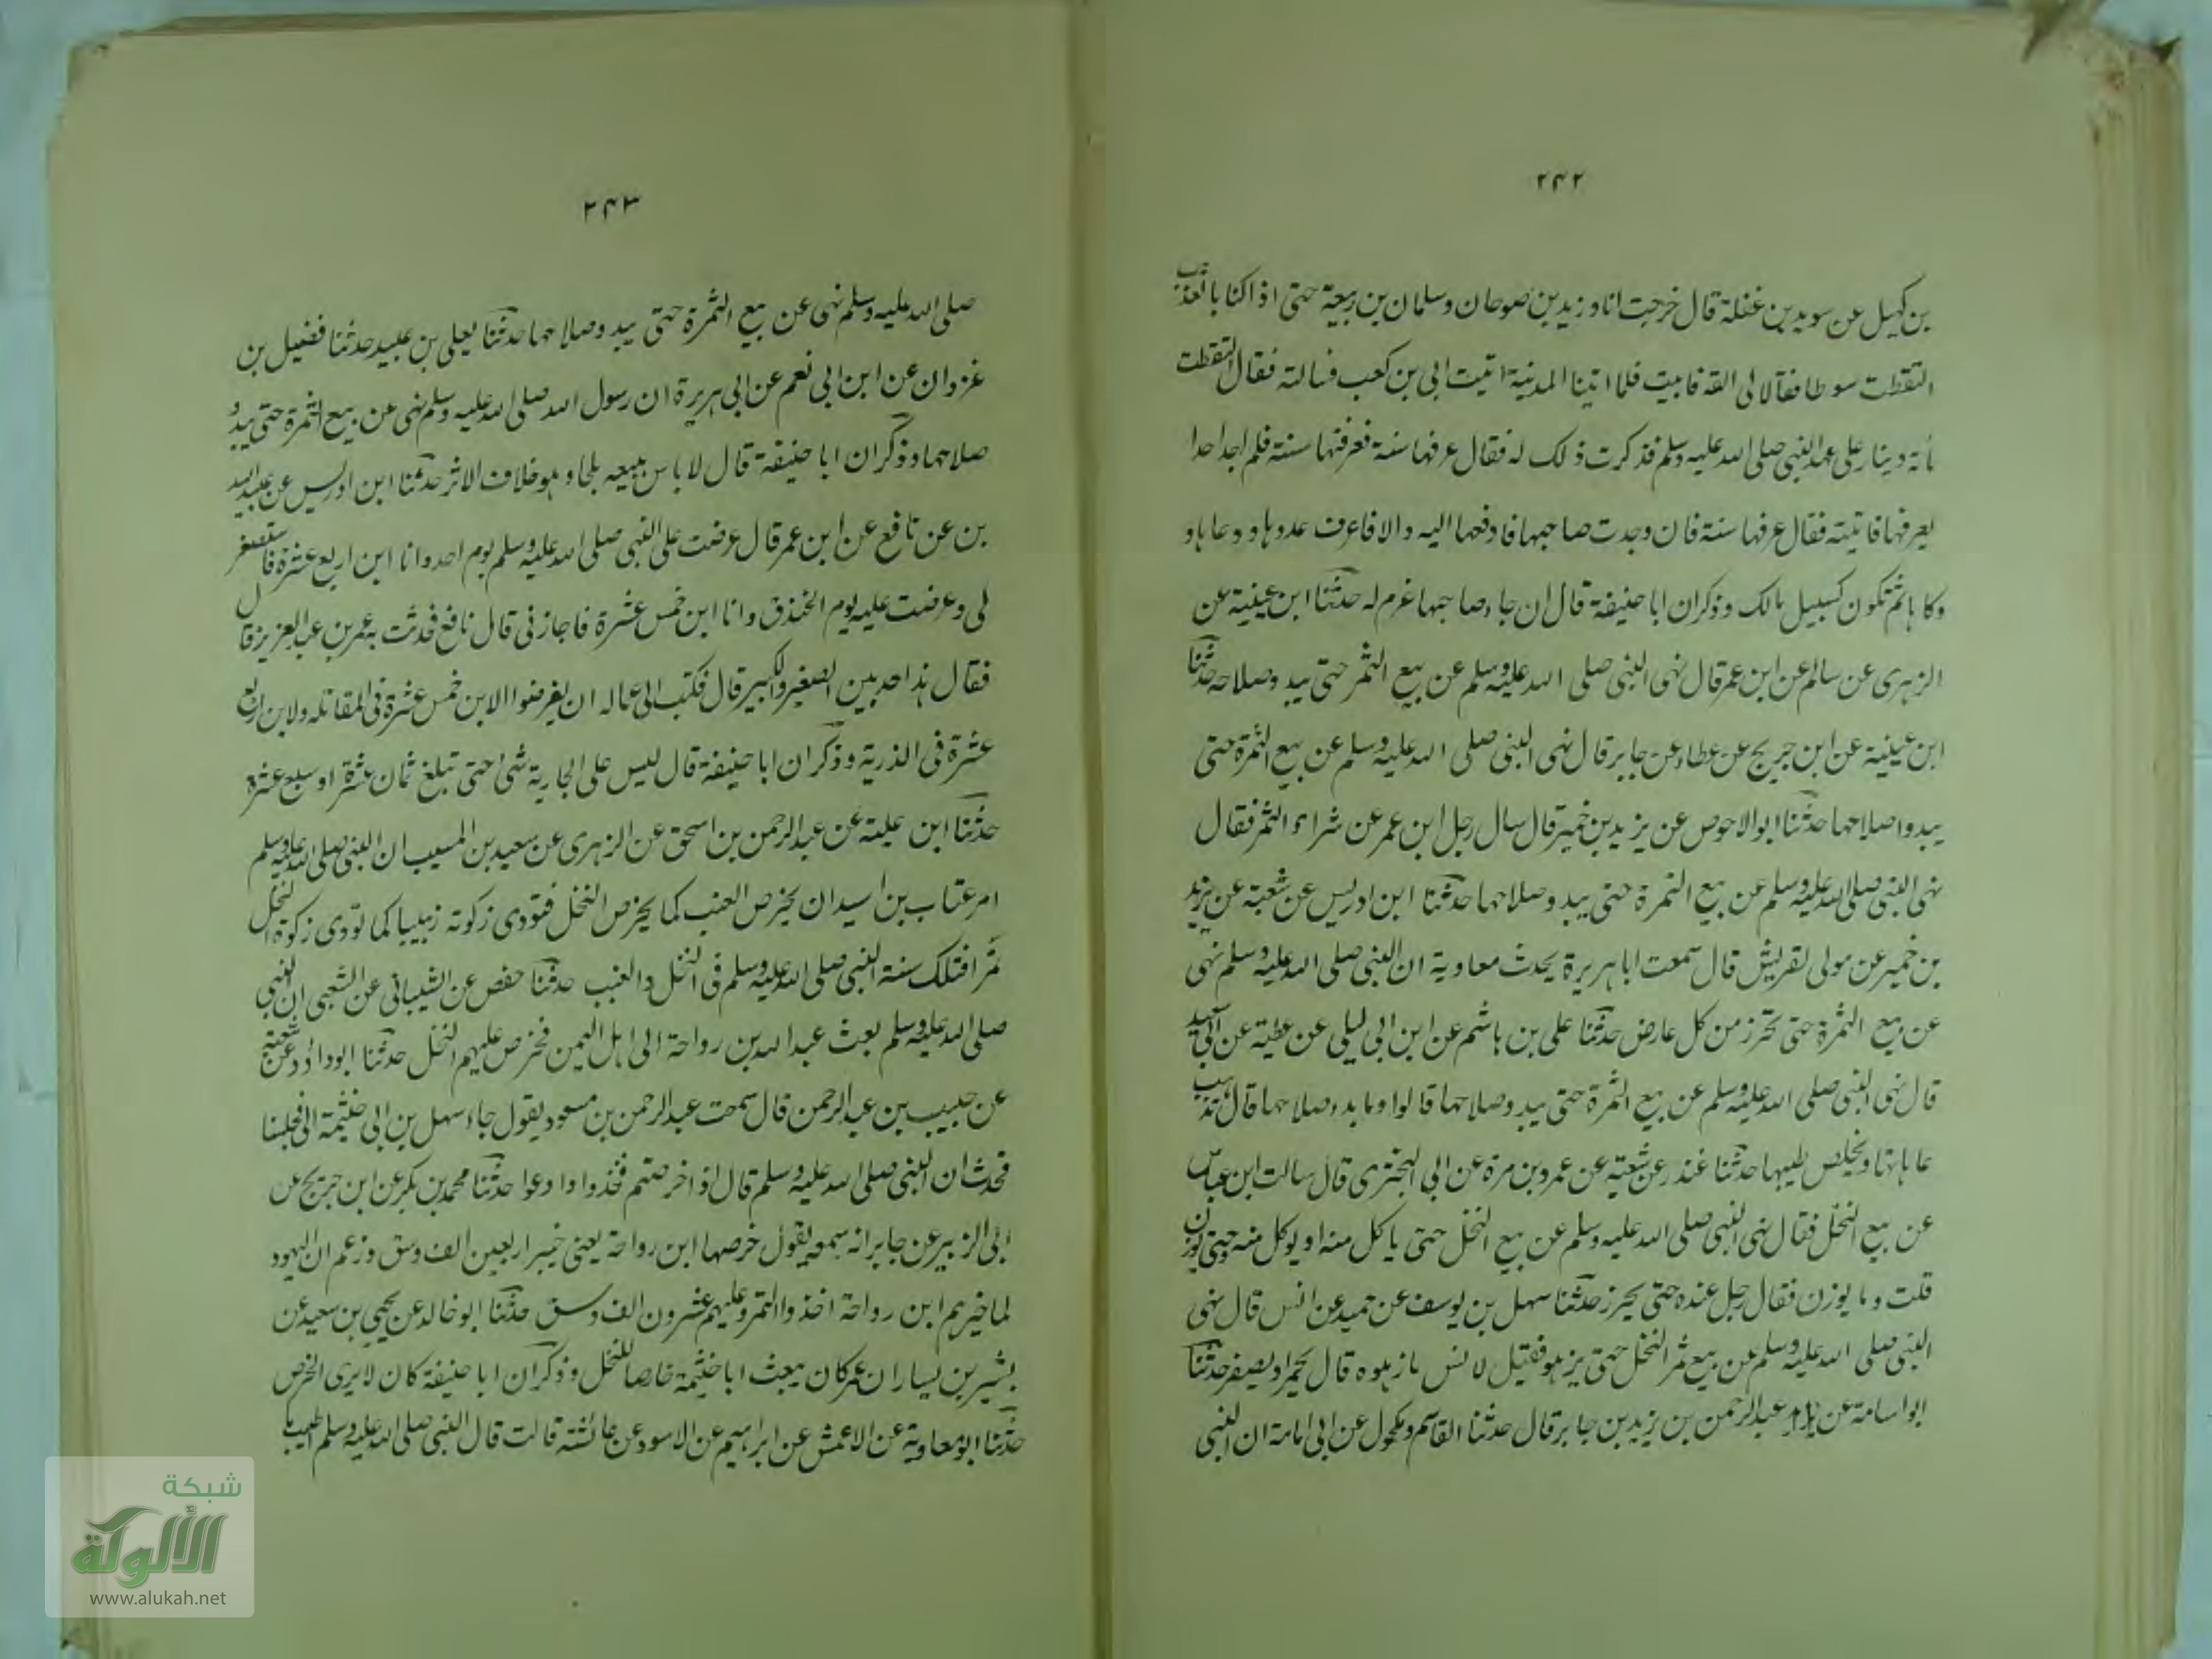 ۲۴۲
بن كهيل عن سويد بن غفلة قال خرجت انا وزيد بن صوحان وسلمان بن ربيعة حتى اذا كنا بالعذيب
التقطت سوطا فقالا لى القه فابيت فلما اتينا المدينة اتيت ابى بن كعب فسالته فقال التقطت
مأة دينار على عهد النبى صلى الله عليه وسلم فذكرت ذلك له فقال عرفها سنة فعرفتها سنة فلم اجد احدا
يعرفها فاتيته فقال عرفها سنة فان وجدت صاحبها فادفعها اليه والا فاعرف عددها ووعاءها و
وكاءها ثم تكون كسبيل مالك وذكر ان ابا حنيفة قال ان جاء صاحبها غرم له حدثنا ابن عيينة عن
الزهرى عن سالم عن ابن عمر قال نهى النبى صلى الله عليه وسلم عن بيع الثمر حتى يبدو صلاحه حدثنا
ابن عيينة عن ابن جريج عن عطاء عن جابر قال نهى النبى صلى الله عليه وسلم عن بيع الثمرة حتى
يبدوا صلاحها حدثنا ابوالاحوص عن يزيد بن خمير قال سال رجل ابن عمر عن شراء الثمر فقال
نهى النبى صلى الله عليه وسلم عن بيع الثمرة حتى يبدو صلاحها حدثنا ابن ادريس عن شعبة عن يزيد
بن خمير عن مولى لقريش قال سمعت ابا هريرة يحدث معاوية ان النبى صلى الله عليه وسلم نهى
عن بيع الثمرة حتى تحرز من كل عارض حدثنا على بن هاشم عن ابن ابى ليلى عن عطية عن ابى سعيد
قال نهى النبى صلى الله عليه وسلم عن بيع الثمرة حتى يبدو صلاحها قالوا وما بدو صلاحها قال تذهب
عاهاتها ويخلص طيبها حدثنا غندر عن شعبة عن عمرو بن مرة عن ابى البخترى قال سالت ابن عباس
عن بيع النخل فقال نهى النبى صلى الله عليه وسلم عن بيع النخل حتى ياكل منه او يوكل منه حتى يوزن
قلت وما يوزن فقال رجل عنده حتى يحرز حدثنا سهل بن يوسف عن حميد عن انس قال نهى
النبى صلى الله عليه وسلم عن بيع ثمر النخل حتى يزهو فقيل لانس ما زهوه قال يحمر او يصفر حدثنا
ابو اسامة عن عبد الرحمن بن يزيد بن جابر قال حدثنا القاسم ومكحول عن ابى امامة ان النبى
۲۴۳
صلى الله عليه وسلم نهى عن بيع الثمرة حتى يبدو صلاحها حدثنا يعلى بن عبيد حدثنا فضيل بن
غزوان عن ابن ابى نعم عن ابى هريرة ان رسول الله صلى الله عليه وسلم نهى عن بيع الثمرة حتى يبدو
صلاحها وذكر ان ابا حنيفة قال لا باس ببيعه بلحا وهو خلاف الاثر حدثنا ابن ادريس عن عبيد الله
بن عن نافع عن ابن عمر قال عرضت على النبى صلى الله عليه وسلم يوم احد وانا ابن اربع عشرة فاستصغر
لى وعرضت عليه يوم الخندق وانا ابن خمس عشرة فاجازنى قال نافع فحدثت به عمر بن عبد العزيز قال
فقال هذا حد بين الصغير والكبير قال فكتب الى عماله ان يفرضوا لابن خمس عشرة فى المقاتلة ولابن اربع
عشرة فى الذرية وذكر ان ابا حنيفة قال ليس على الجارية شئ حتى تبلغ ثمان عشرة او سبع عشرة
حدثنا ابن علية عن عبد الرحمن بن اسحق عن الزهرى عن سعيد بن المسيب ان النبى صلى الله عليه وسلم
امر عتاب بن اسيد ان يخرص العنب كما يخرص النخل فتودى زكوته زبيبا كما تودى زكوة النخل
تمرا فتلك سنة النبى صلى الله عليه وسلم فى النخل والعنب حدثنا حفص عن الشيبانى عن الشعبى ان النبى
صلى الله عليه وسلم بعث عبد الله بن رواحة الى اهل اليمن فخرص عليهم النخل حدثنا ابو داؤد عن شعبة
عن حبيب بن عبد الرحمن قال سمعت عبد الرحمن بن مسعود يقول جاء سهل بن ابى خثيمة الى مجلسنا
فحدث ان النبى صلى الله عليه وسلم قال اذا خرصتم فخذوا وادعوا حدثنا محمد بن بكر عن ابن جريج عن
ابى الزبير عن جابر انه سمعه يقول خرصها ابن رواحة يعنى خيبر اربعين الف وسق وزعم ان اليهود
لما خيرهم ابن رواحة اخذوا التمر وعليهم عشرون الف وسق حدثنا ابو خالد عن يحيى بن سعيد عن
بشير بن يسار ان عمر كان يبعث ابا خثيمة خارصا للنخل وذكر ان ابا حنيفة كان لا يرى الخرص
حدثنا ابو معاوية عن الاعمش عن ابراهيم عن الاسود عن عائشة قالت قال النبى صلى الله عليه وسلم اطيب
شبكة
الألوكة
www.alukah.net